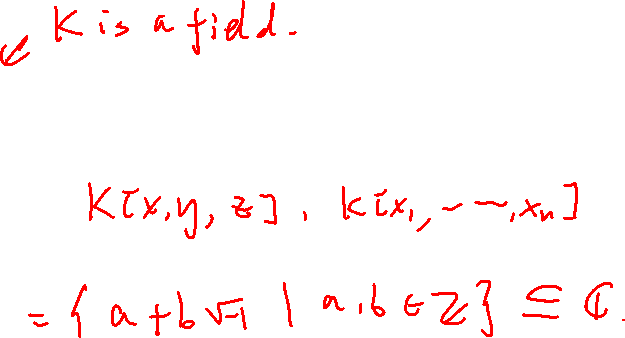 K is a field.
K[x,y,z], K[x₁,⋯,xₙ]
= { a+b√-1 | a,b ∈ ℤ} ⊆ ℂ.